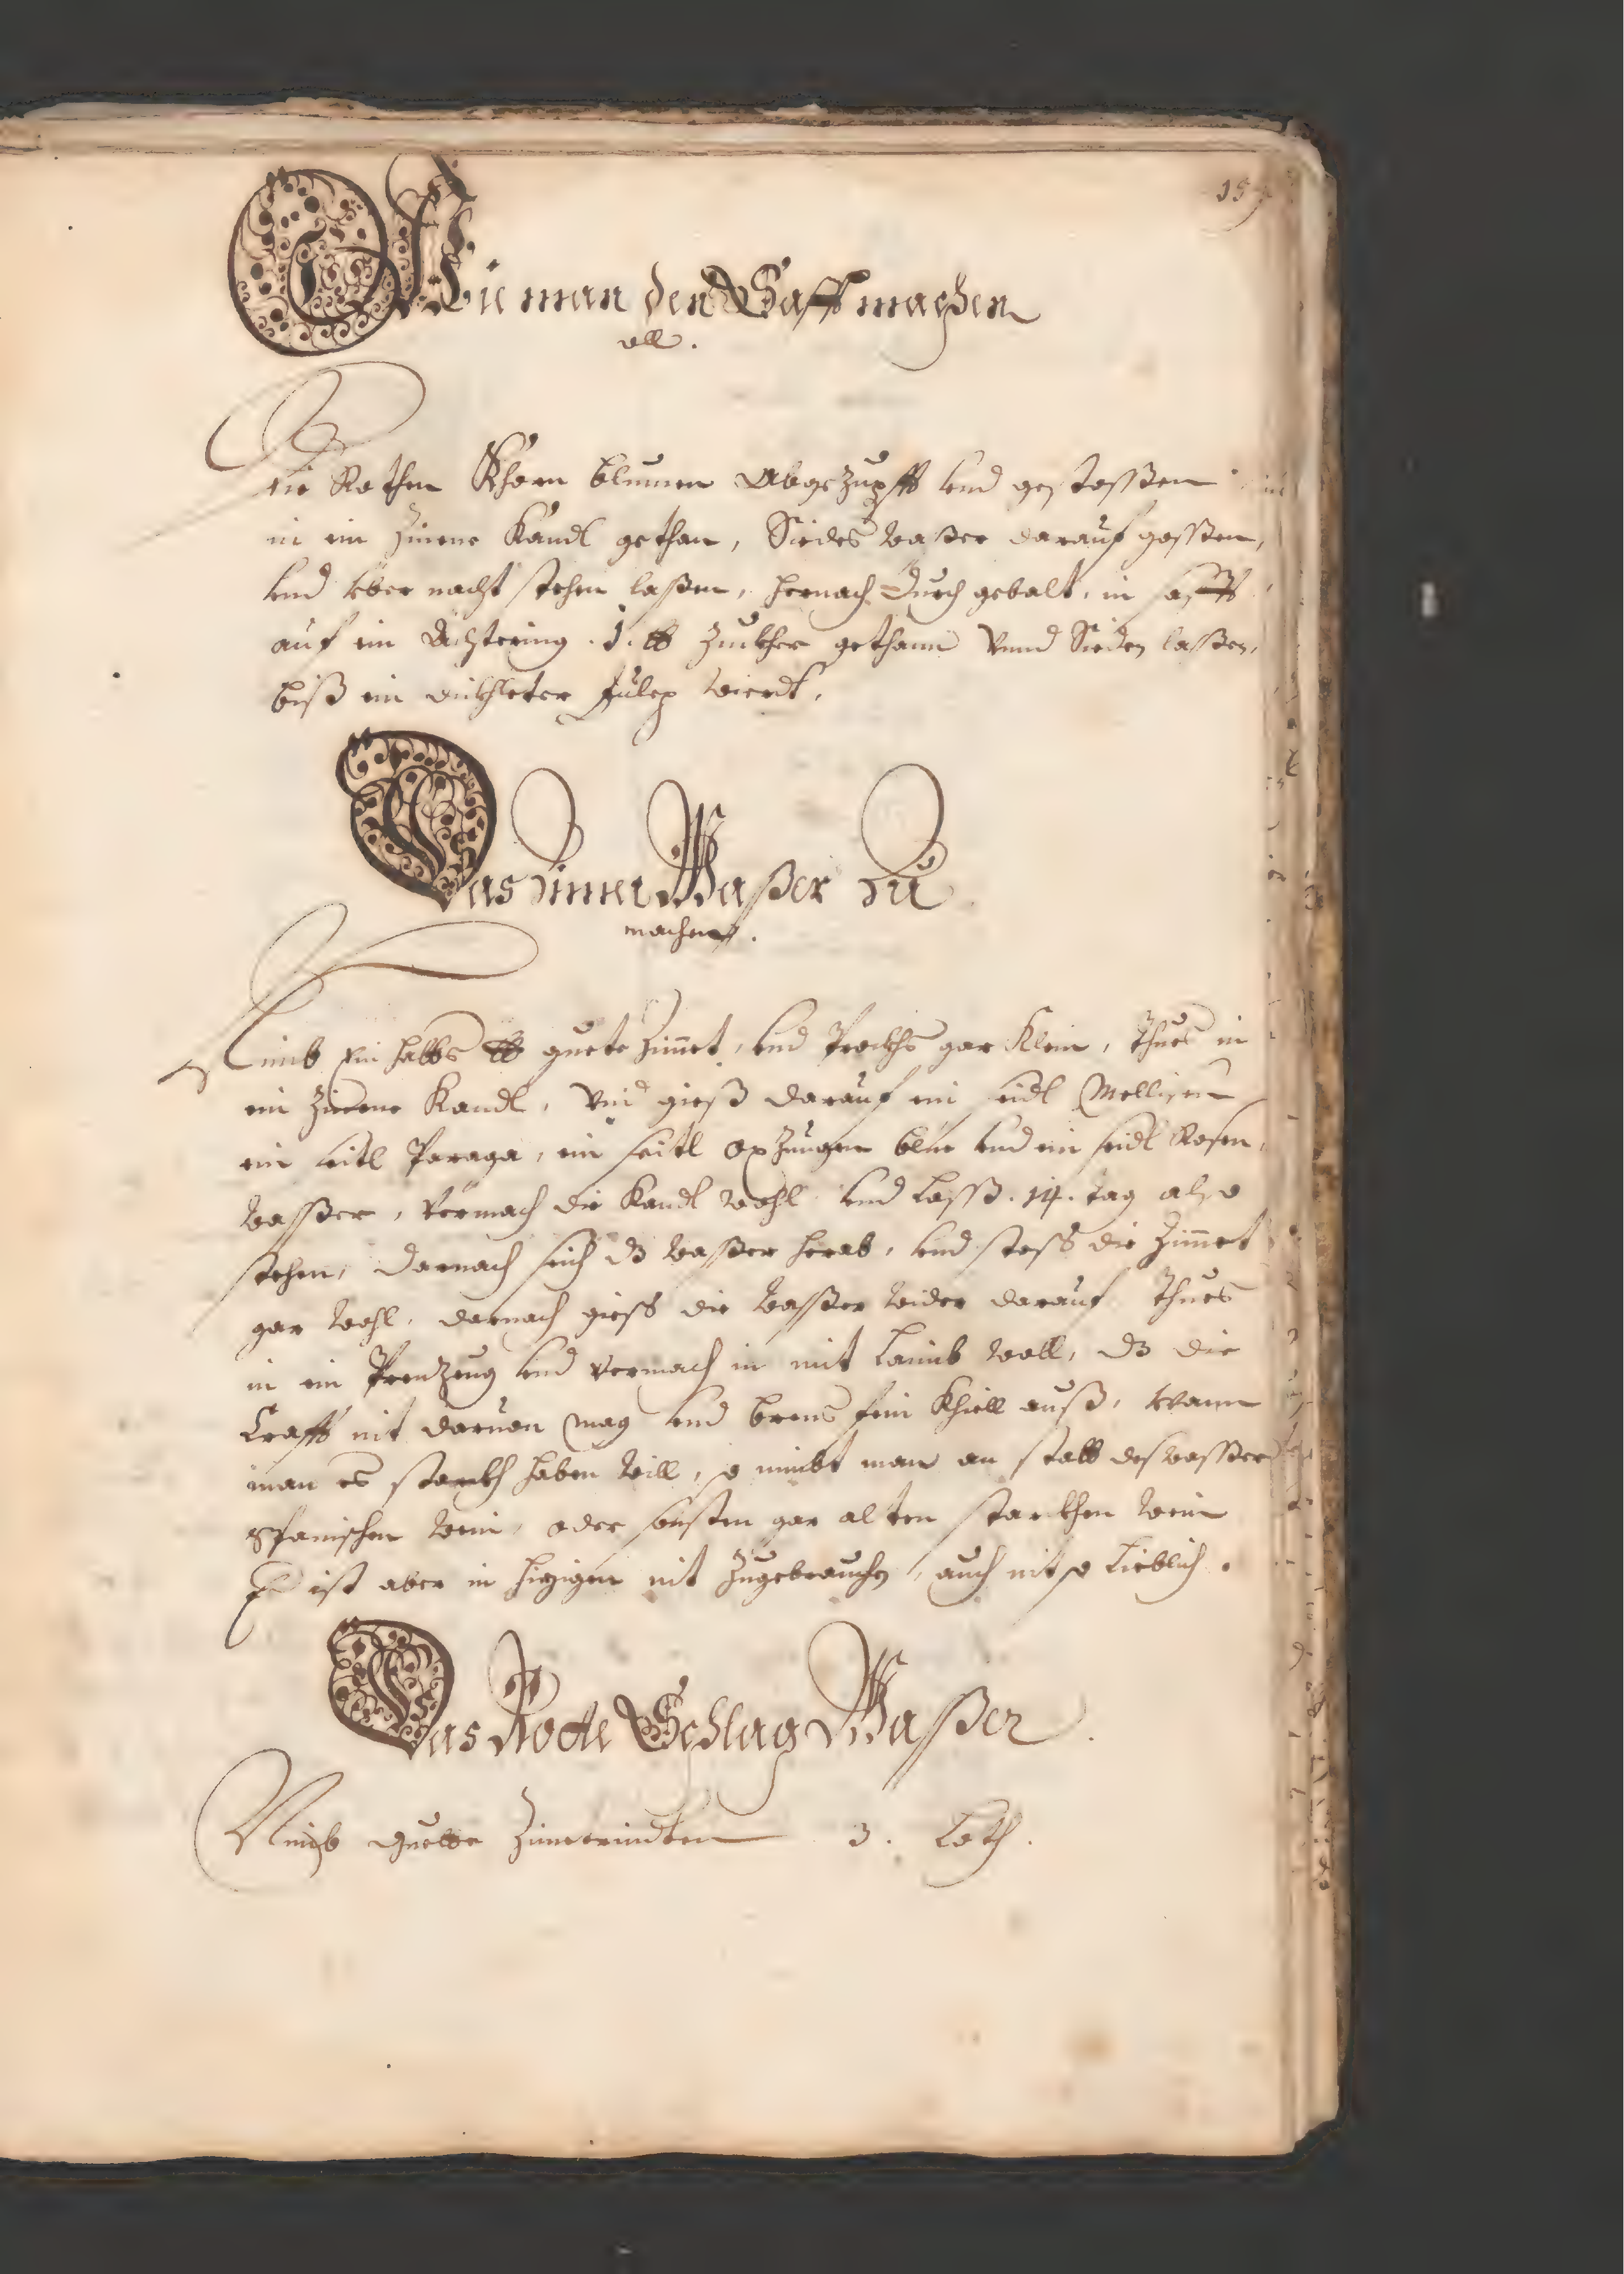 Wie man den Safft machen
oll.
Die Rothen Khorn blumen Abgezupfft vnd gestossen
in ein Zinene Kandl gethan, Siedes wasser darauf gossen,
vnd vber nacht stehen lassen, hernach durch gebalt, in safft
auf ein Achtering .1. ℔ Zuckher gethann Vnnd Sieden lassen,
biß ein dickhleter Julep wierdt.
Das Zimet Wasser Zu
machen.
Nimb Ein halbs ℔ guete Zimet, vnd Prockhs gar Klein, Thues in
ein Zinene Kandl, Vnd gieß darauf ein seidl Mellisen
ein seitl Paraga, ein seitl oxZungen blue vnd ein seidl Rosen
wasser, Vermach die Kandl wohl vnd lasß .14. tag also
stehen, darnach seich dz wasser herab, vnd stoss die Zimet
gar wohl, darnach giess die wasser wider darauf Thues
in ein Prenzeug vnd vermach in mit Laimb woll, dz die
Crafft nit daruon mag vnd brens fein Khiell auß, wann
man es starckh haben will, so nimbt man an statt des wasser
Spanischen wein, oder sonsten gar alten starckhen wein
Er ist aber in hizigen nit Zugebrauchen, auch nit so Lieblich.
Das Rotte Schlag Wasser.
Nimb guette Zimetrindten 3. Loth.